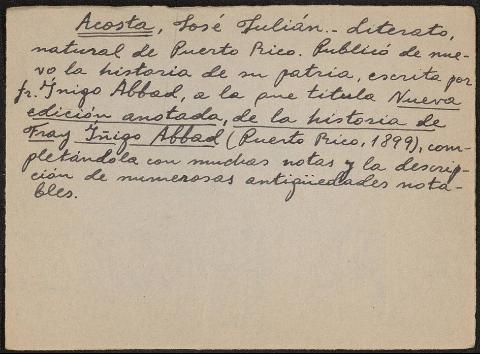 Acosta, José Julián.- Literato,
natural de Puerto Rico. Publicó de nue-
vo la historia de su patria, escrita por
fr. Íñigo Abbad, a la que titula Nueva
edición anotada, de la historia de
Fray Íñigo Abbad (Puerto Rico, 1899), com-
pletándola con muchas notas y la descrip-
ción de numerosas antigüedades nota-
bles.